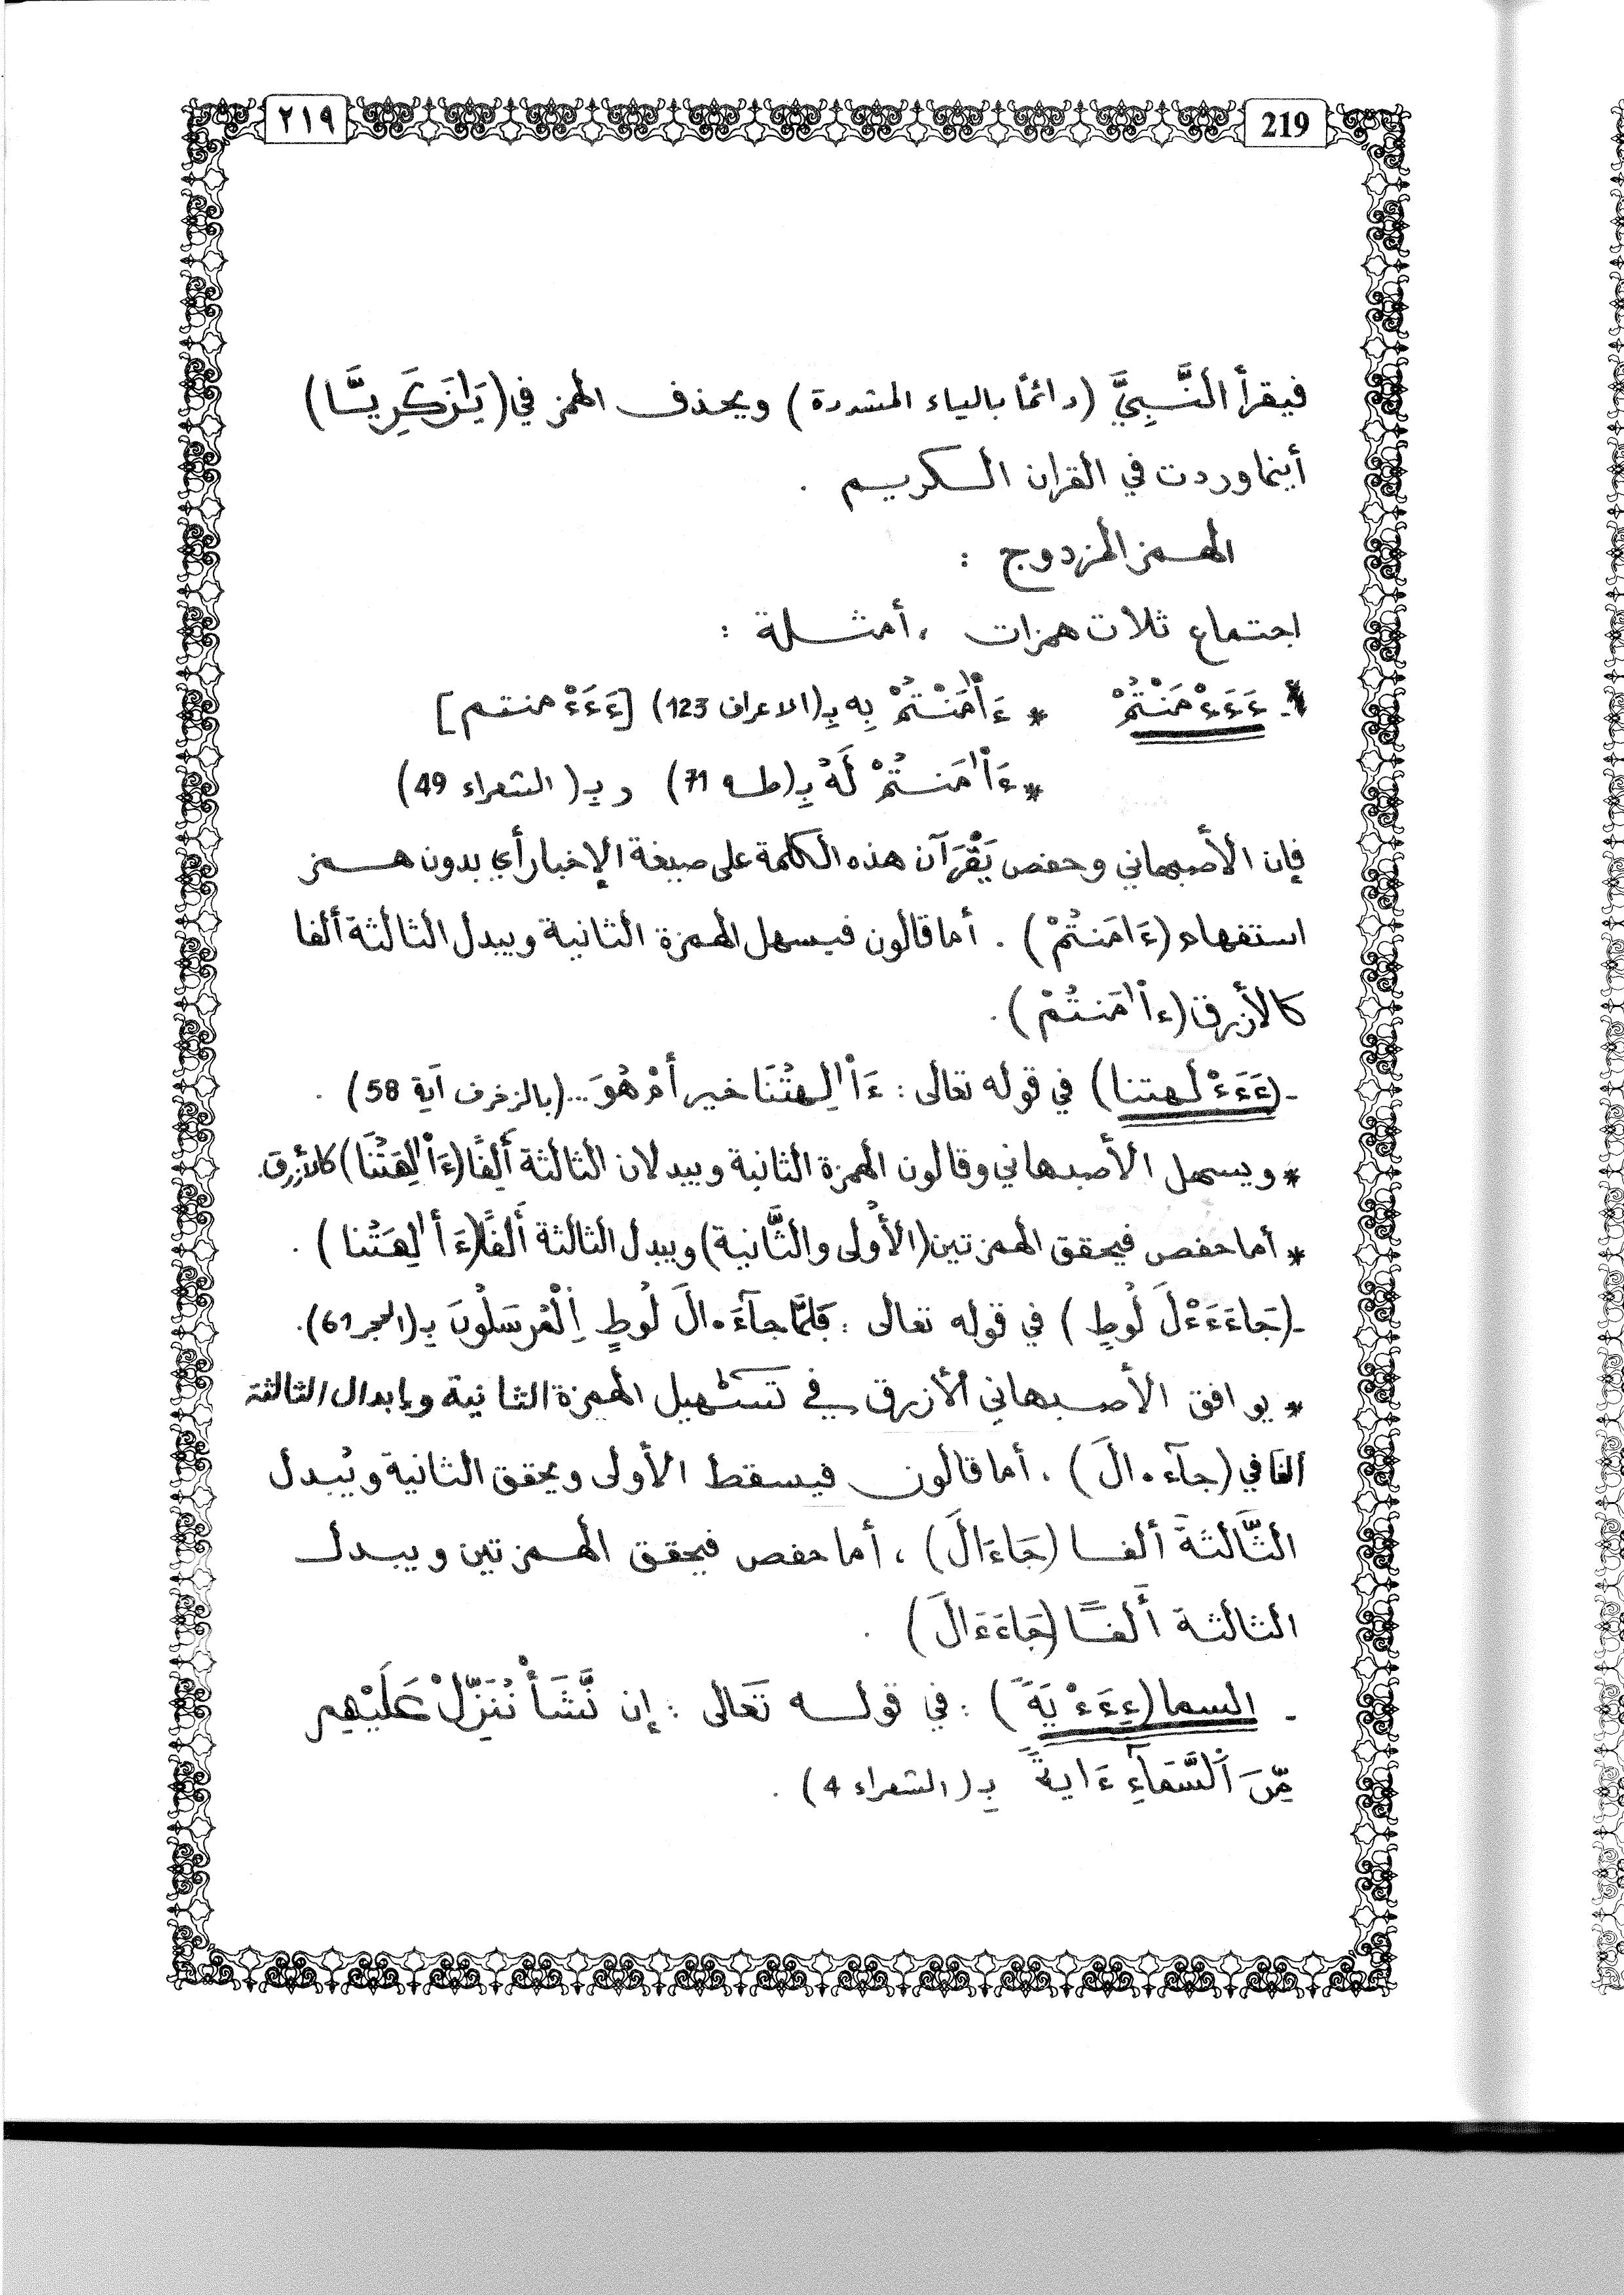 ٢١٩ 219
فيقرأ النَّبِيَّ (دائمًا بالياء المشددة) ويحذف الهمز في (يَازَكَرِيَّا)
أينما وردت في القران الكريم .
الهمز المزدوج :
اجتماع ثلاث همزات ، أمثلة :
ءَءَءْمَنْتُمْ * ءَاْمَنْتُمْ بِه بِـ(الاعراف 123) [ءَءَءْمنتم]
* ءَاْ امَنتُمْ لَهُ بِـ(طه 71) و بِـ( الشعراء 49)
فإن الأصبهاني وحفص يَقْرَآن هذه الكلمة على صيغة الإخبار أي بدون همز
استفهام (ءَامَنتُمْ) . أما قالون فيسهل الهمزة الثانية ويبدل الثالثة ألفا
كالأزرق (ءاْ امَنتُمْ) .
-(ءَءَءْلهتنا) في قوله تعالى : ءَاْ الِهتُنَا خير أمْ هُوَ ... (بالزخرف آية 58) .
* ويسهل الأصبهاني وقالون الهمزة الثانية ويبدلان الثالثة ألِفًا (ءَاْ الِهَتُنَا) كالأزرق.
* أما حفص فيحقق الهمزتين (الأُولى والثَّانية) ويبدل الثالثة ألفًا (ءَ أ الِهَتُنا) .
-(جَاءَءَءْلَ لُوطٍ) في قوله تعالى : فَلَمَّا جآءَ . الَ لُوطٍ اِلْمُرْسَلُونَ بـ(الحجر 61).
* يوافق الأصبهاني الأزرق في تسْهيل الهمزة الثانية وإبدال الثالثة
ألفا في (جآء . الَ) . أما قالون فيسقط الأولى ويحقق الثانية ويُبدل
الثَّالثةَ ألفا (جَاءَالَ) ، أما حفص فيحقق الهمزتين ويبدل
الثالثة ألفًا (جَاءَءَالَ) .
- السما (ءِءَءْيَةً) : في قوله تَعَالى : إن نَّشَأْ نُنَزِّلْ عَلَيْهِم
مِّنَ اَلسَّمَآءِ ءَايةً بِـ( الشعراء 4) .